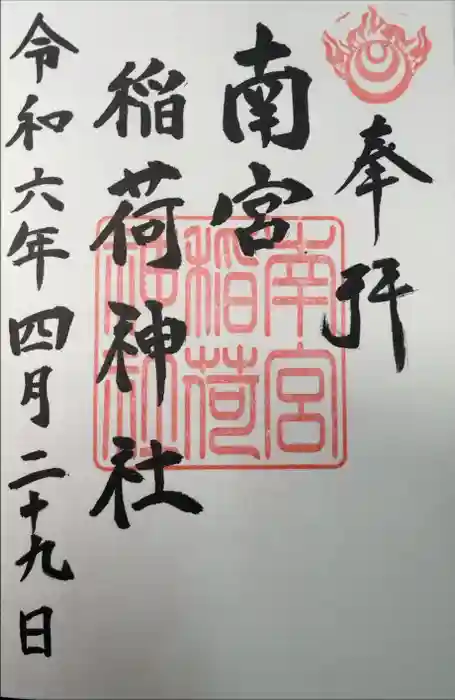 奉拝
南宮
稲荷神社
南宮
稲荷
神社
令和六年四月二十九日